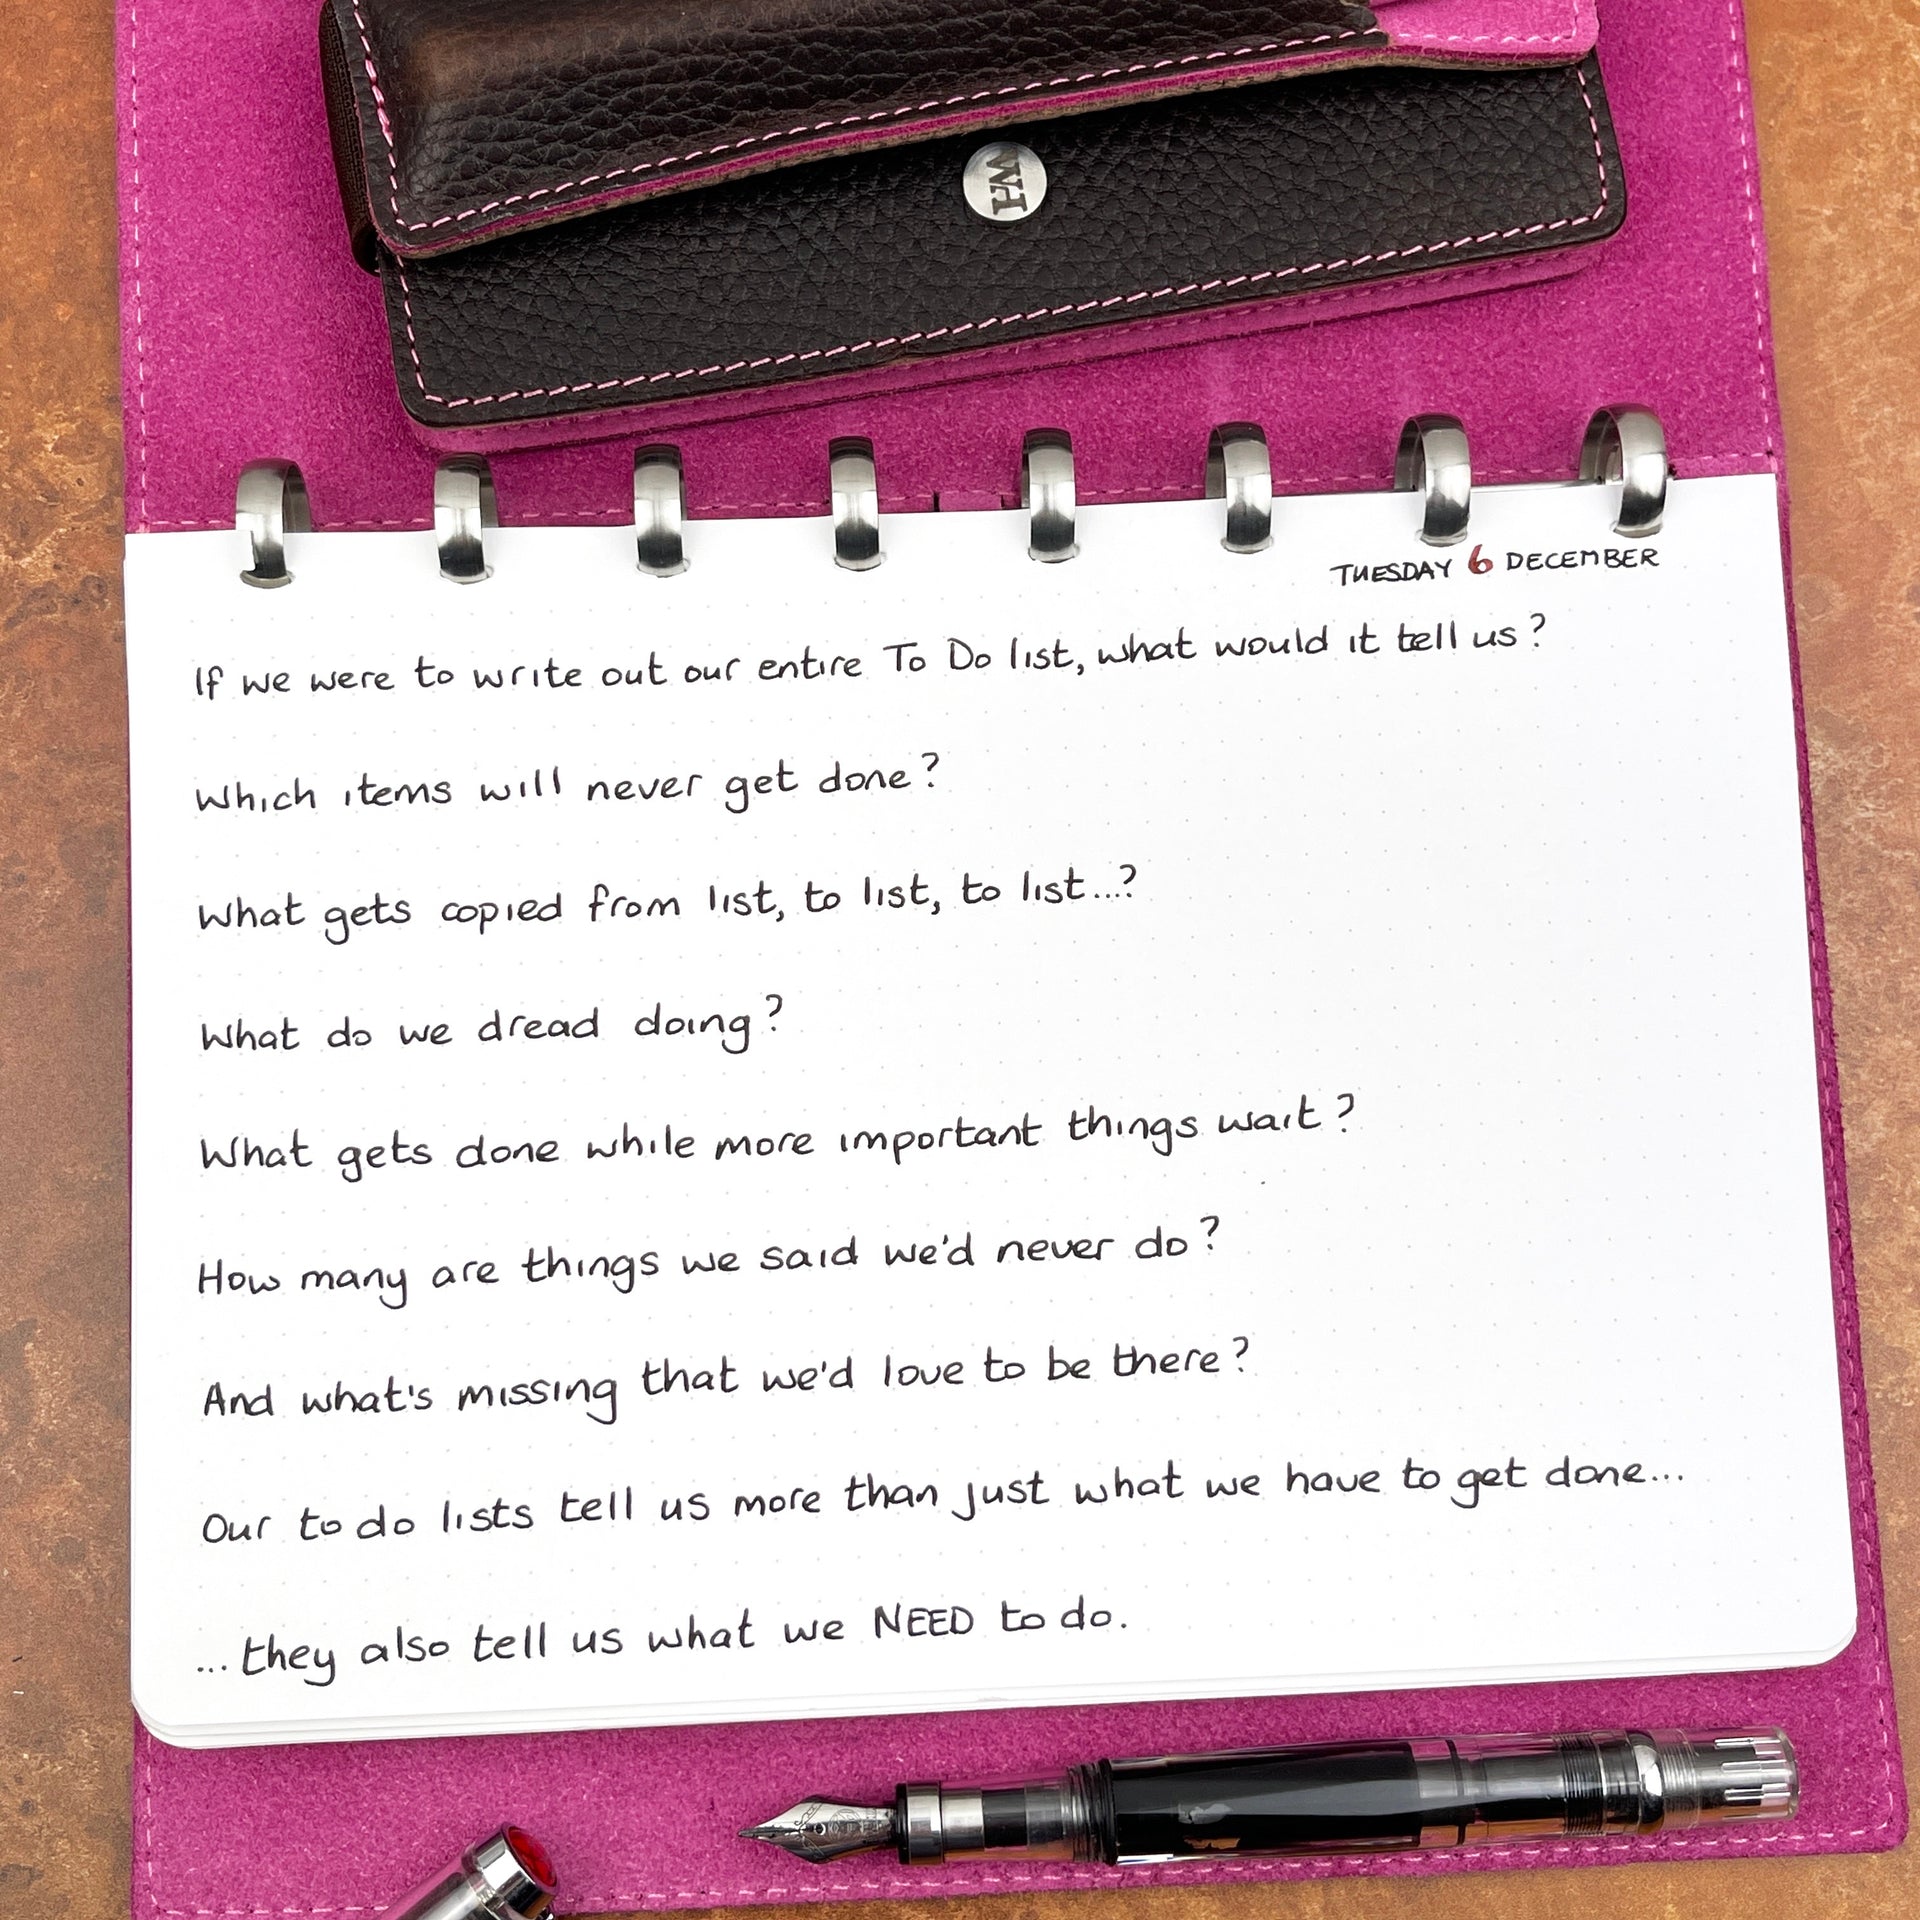 WH
TUESDAY 6 DECEMBER
If we were to write out our entire To Do list, what would it tell us?
Which items will never get done?
What gets copied from list, to list, to list...?
What do we dread doing?
What gets done while more important things wait?
How many are things we said we'd never do?
And what's missing that we'd love to be there?
Our to do lists tell us more than just what we have to get done...
...they also tell us what we NEED to do.